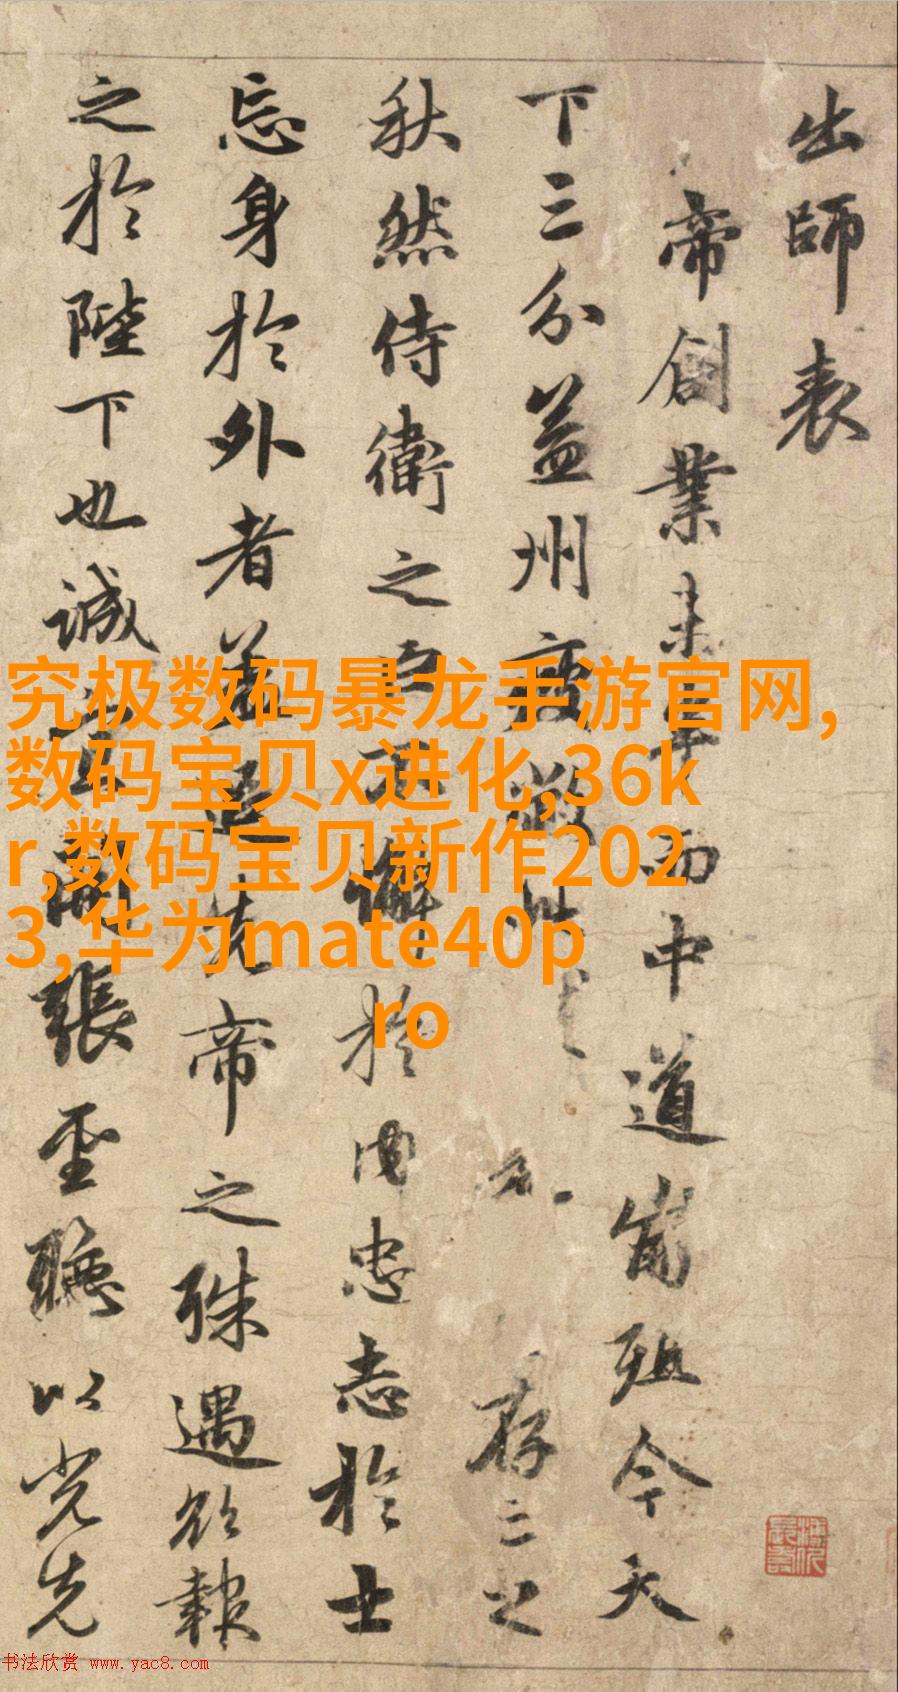 出師表
帝創業未半而中道崩殂今天
下三分益州疲敝此存之
秋然侍衛之臣不懈於内忠志於士
忘身於外者蓋追先帝之殊遇欲報
之於陛下也誠宜開張聖聽以光先
究极数码暴龙手游官网,
数码宝贝x进化,36k
r,数码宝贝新作202
3,华为mate40p
ro
书法欣赏 www.yac8.com